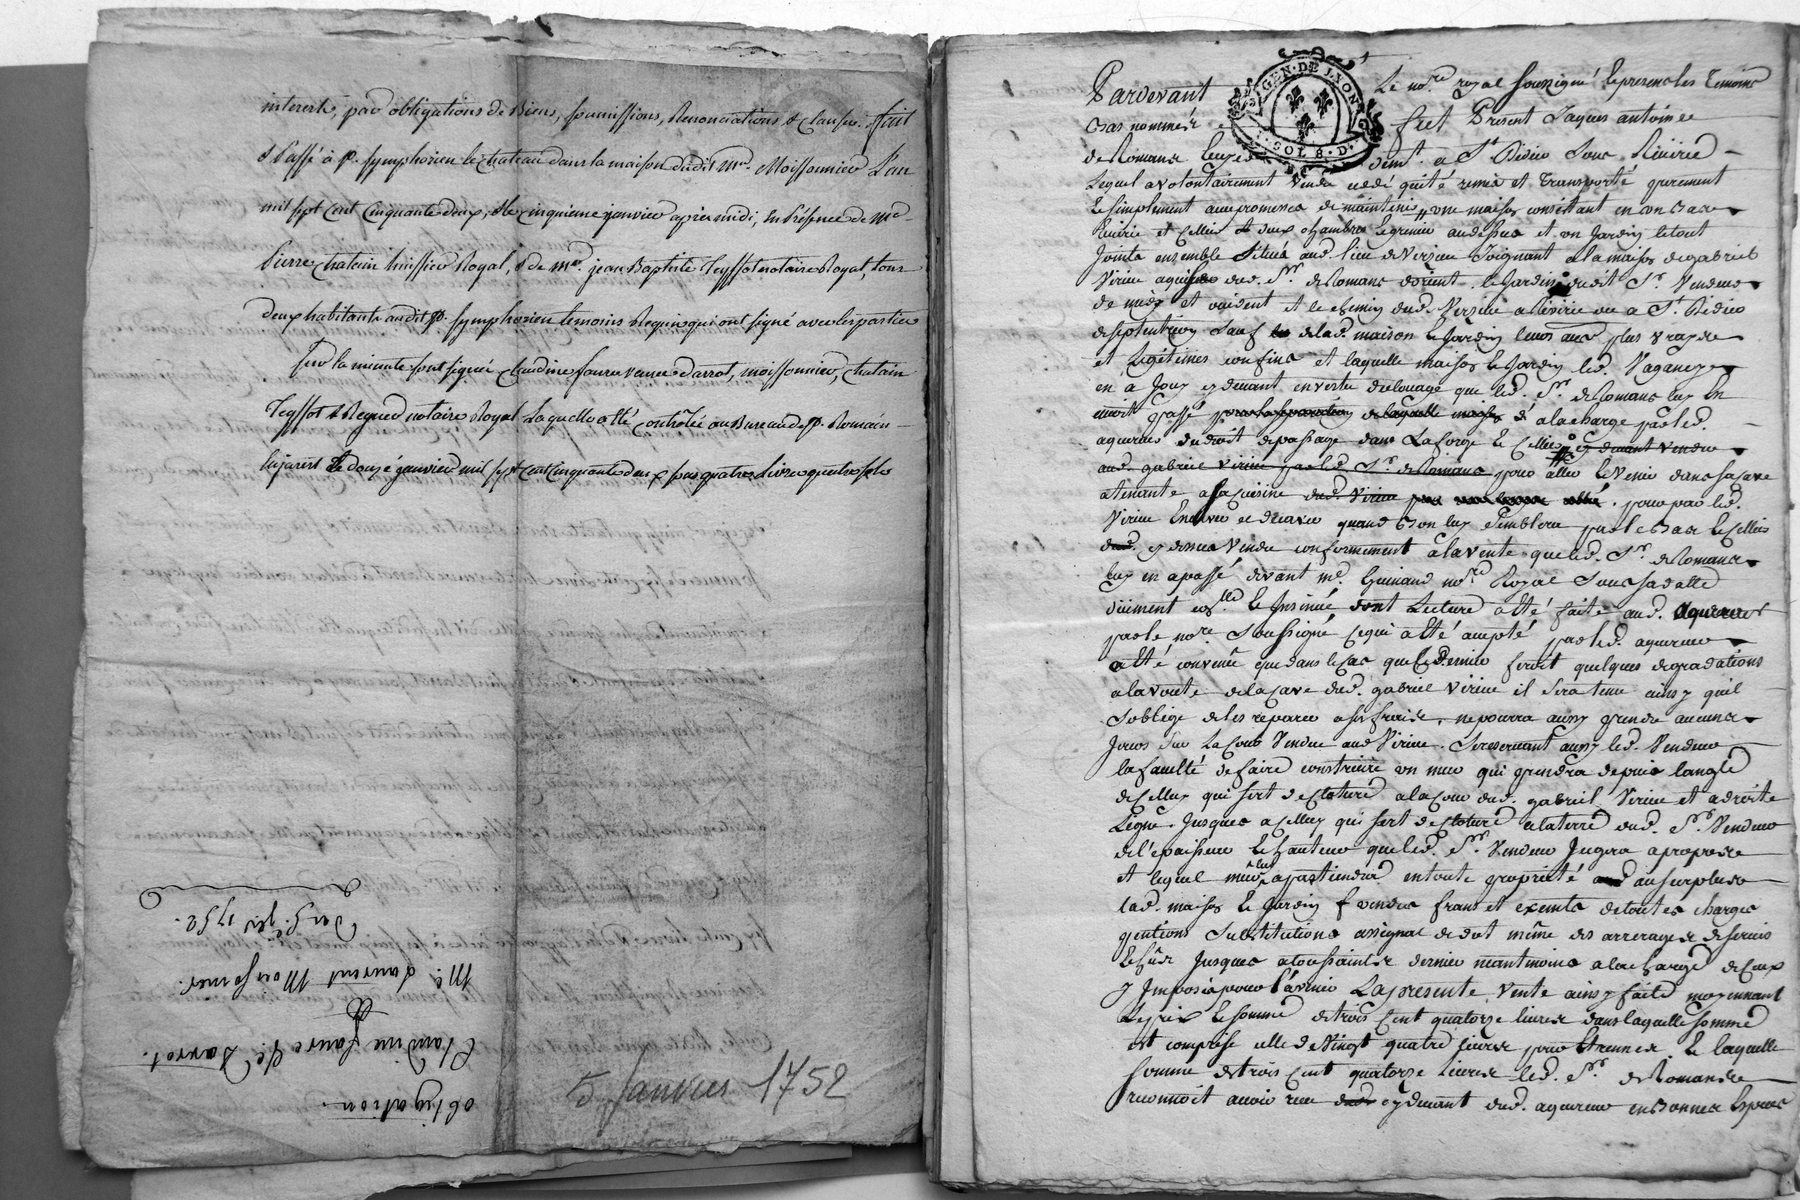 interests, par obligations de Biens, soumissions, Renonciations & clauses. fait
& Passé à St. Symphorien le chateau dans la maison dudit Me. Moissonnier L'an
mil sept cent Cinquante deux, & le cinquieme janvier apres midi, En Présence de Me
Pierre chatain huissier Royal, & de Me. jean Baptiste Teyssot notaire Royal, tous
deux habitants audit St. Symphorien temoins Requis qui ont signé avec les parties
sur la minute sont signés Claudine faure veuve darrot, moissonnier, chatain
Teyssot & notaire Royal Laquelle a été controlée au Bureau de St. Romain
le douze janvier mil sept cent cinquante deux quatre Livres quatre sols
obligation.
Claudine faure Ve. Darrot.
&
Me. Laurent Moissonier.
Du 5e. 1752.
5 Janvier 1752
GEN. DE LYON
SOLS. D.
Pardevant Le nore. royal soussigné & presens les Temoins
bas nommés fut Present Jaques antoine
de Romans demt. a St. Didier Sous Riviere
Lequel a volontairement vendu cedé quité remis et Transporté purement
& simplement avec promesse de maintenir une maison consistant en un bas
et Cellier & deux chambres & grenier au dessus et un Jardin le tout
Joints ensemble Situés aud. lieu de Versieu Joignant a la maison de gabriel
Virieu aquise dud. Sr. de Romans dorient, le Jardin dudit Sr. Vendeur
de midy et occident et le chemin dud. Versieu a ou a St. Didier
de septentrion Sauf de lad. maison & Jardin leurs autres plus vrays
et Legitimes confins et laquelle maison & Jardin led.
en a Jouy cy devant en vertu du louage que led. Sr. de Romans luy en
avoit passé & a la charge par led.
aquereur du droit de passage dans La forge & Cellier cy devant vendu
aud. gabriel Virieu par led. Sr. de Romans pour aller & Venir dans sa cave
atenante a sa cuisine dud. Virieu pour par led.
Virieu Entrer et quand bon luy semblera par le bas & Cellier
cy dessus Vendu conformement a la vente que led. Sr. de Romans
luy en a passé devant me. Guinand nore. Royal Sous sa datte
duement & Insinué dont Lecture a été faite aud. aquereur
par le nore. Soussigné ce qui a été accepté par led. aquereur
a été convenu que dans le cas que ce dernier feroit quelques degradations
a la voute de la cave dud. gabriel Virieu il sera tenu ainsy quil
s'oblige de les reparer a ses frais, ne pourra aussy prendre aucuns
Jours sur La Cour Vendue aud Virieu. Se reservant aussy led. Vendeur
la faculté de faire construire un mur qui prendra depuis langle
de Celluy qui sert de cloture a la cour dud. gabriel Virieu et a droite
Ligne Jusques a Celluy qui sert de cloture a la terre dud. Sr. Vendeur
de l'epaisseur & hauteur que led. Sr. Vendeur Jugera a propos
et lequel mur luy apartiendra en toute proprieté au surplus
lad. maison & Jardin vendus francs et exemts de toutes charges
pentions Substitutions assignat de dot même des arrerages de servis
Jusques a toussaints dernier neantmoins a la charge de ceux
y Imposés pour l'avenir La presente Vente ainsy faite moyennant
le prix & somme de trois Cent quatorze livres dans laquelle somme
est comprise celle de Vingt quatre livres pour Etrennes & laquelle
somme de trois Cent quatorze Livres led. Sr. de Romans
reconnoit avoir reçu cy devant dud. aquereur en bonnes Especes